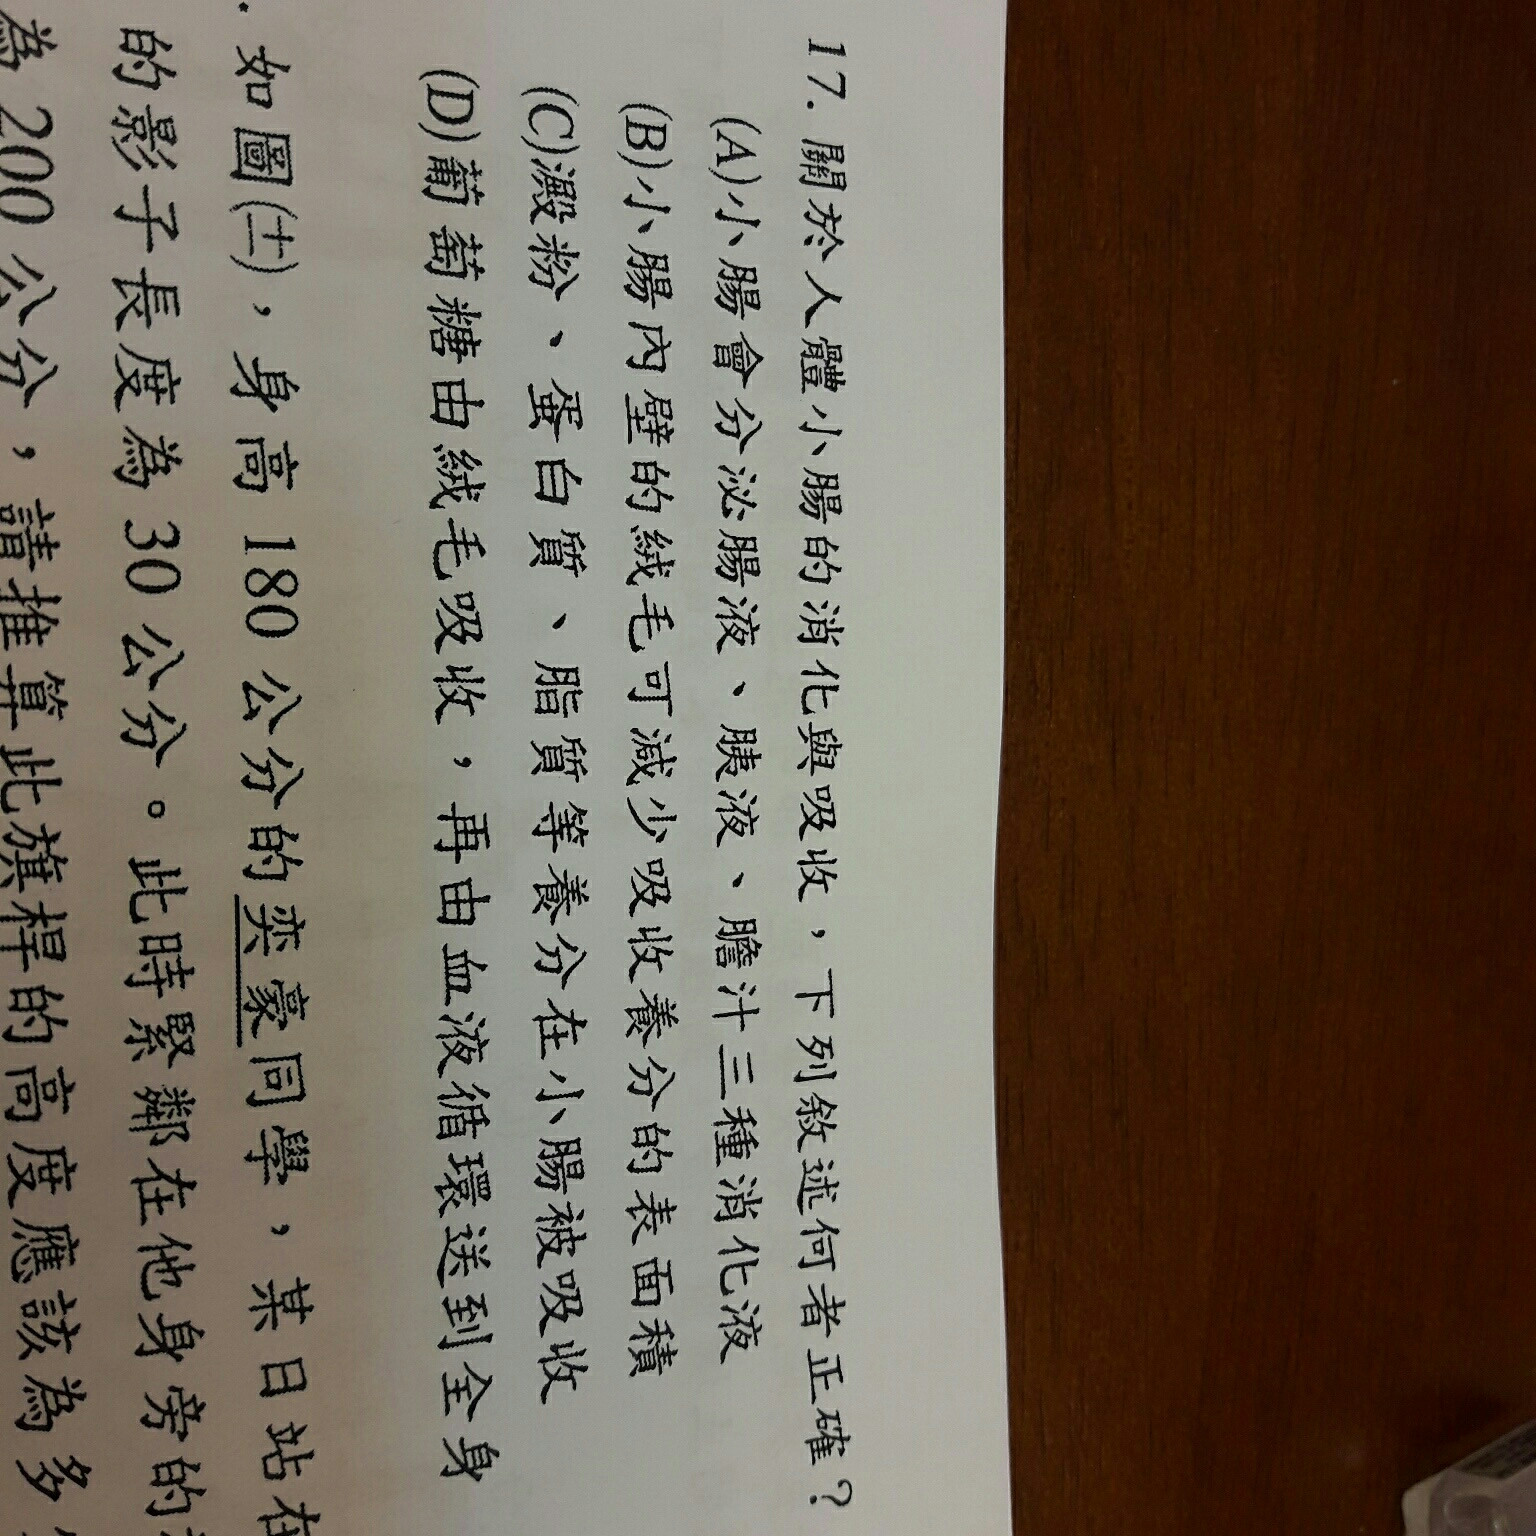 17. 關於人體小腸的消化與吸收，下列敘述何者正確？
(A)小腸會分泌腸液、胰液、膽汁三種消化液
(B)小腸內壁的絨毛可減少吸收養分的表面積
(C)澱粉、蛋白質、脂質等養分在小腸被吸收
(D)葡萄糖由絨毛吸收，再由血液循環送到全身
. 如圖(十一)，身高 180 公分的奕豪同學，某日站在
的影子長度為 30 公分。此時緊鄰在他身旁的
為 200 公分，請推算此旗桿的高度應該為多